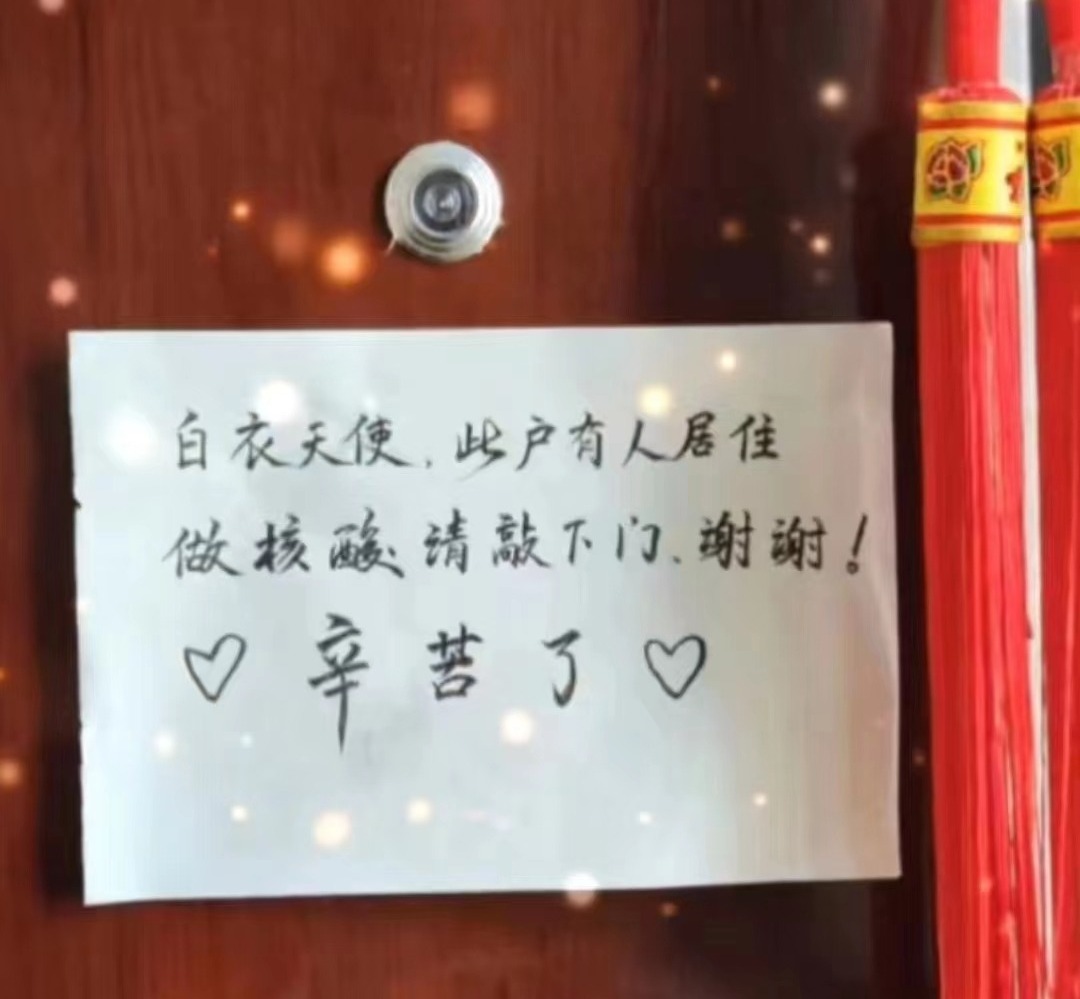 白衣天使，此户有人居住
做核酸请敲下门、谢谢！
♡ 辛苦了 ♡